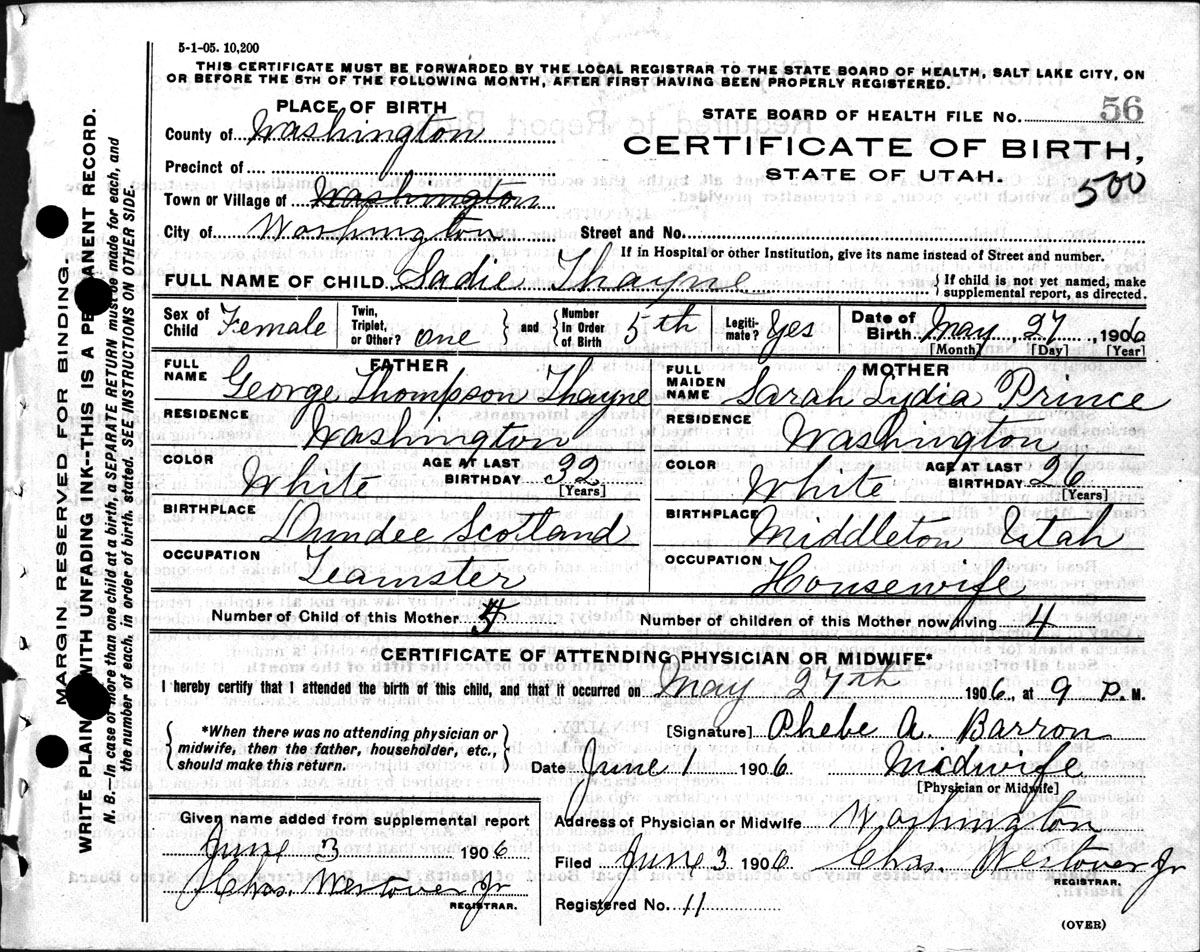 5-1-05. 10,200
THIS CERTIFICATE MUST BE FORWARDED BY THE LOCAL REGISTRAR TO THE STATE BOARD OF HEALTH, SALT LAKE CITY, ON
OR BEFORE THE 5TH OF THE FOLLOWING MONTH, AFTER FIRST HAVING BEEN PROPERLY REGISTERED.
PLACE OF BIRTH
STATE BOARD OF HEALTH FILE No. 56
County of Washington
CERTIFICATE OF BIRTH,
Precinct of
STATE OF UTAH.
500
Town or Village of Washington
City of Washington Street and No.
If in Hospital or other Institution, give its name instead of Street and number.
FULL NAME OF CHILD Sadie Thayne { If child is not yet named, make supplemental report, as directed.
Sex of Child Female Twin, Triplet, or Other? one } and { Number in Order of Birth 5th Legiti-mate? Yes Date of Birth May, 27, 1906
[Month] [Day] [Year]
FATHER
FULL NAME George Thompson Thayne
MOTHER
FULL MAIDEN NAME Sarah Lydia Prince
RESIDENCE Washington
RESIDENCE Washington
COLOR White AGE AT LAST BIRTHDAY 32 [Years]
COLOR White AGE AT LAST BIRTHDAY 26 [Years]
BIRTHPLACE Dundee Scotland
BIRTHPLACE Middleton Utah
OCCUPATION Teamster
OCCUPATION Housewife
Number of Child of this Mother 5 Number of children of this Mother now living 4
CERTIFICATE OF ATTENDING PHYSICIAN OR MIDWIFE*
I hereby certify that I attended the birth of this child, and that it occurred on May 27th 1906, at 9 P. M.
{ *When there was no attending physician or midwife, then the father, householder, etc., should make this return. }
[Signature] Phebe A. Barron
Date June 1 1906 Midwife
[Physician or Midwife]
Given name added from supplemental report
June 3 1906
Chas. Westover Jr
REGISTRAR.
Address of Physician or Midwife Washington
Filed June 3 1906 Chas. Westover Jr
REGISTRAR.
Registered No. 11
(OVER)
MARGIN RESERVED FOR BINDING.
WRITE PLAIN WITH UNFADING INK--THIS IS A PERMANENT RECORD.
N. B.—In case of more than one child at a birth, a SEPARATE RETURN must be made for each, and
the number of each, in order of birth, stated. SEE INSTRUCTIONS ON OTHER SIDE.